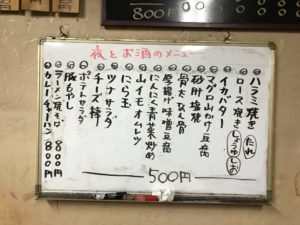 800円
夜とお酒のメニュー
ハラミ焼き たれ
ロース焼き しょうゆ しお
イカバター
マグロ山かけ豆腐
砂肝塩焼
骨なん骨
厚揚げ味噌豆腐
にんにく青菜炒め
山イモオムレツ
にら玉
ツナサラダ
チーズ棒
ポテトサラダ
豚もやし
500円
ラーメン焼き 800円
カレーチャーハン 800円